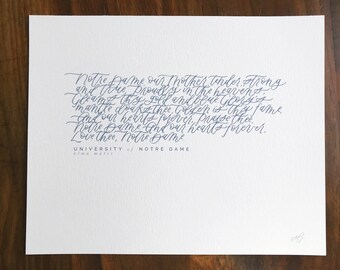 Notre Dame our Mother tender strong
and true Proudly in the heavens,
Gleams thy gold and blue. Glory's
mantle cloaks thee Golden is thy fame,
And our hearts forever, Praise thee
Notre Dame. And our hearts forever,
Love thee, Notre Dame
UNIVERSITY of NOTRE DAME
alma mater